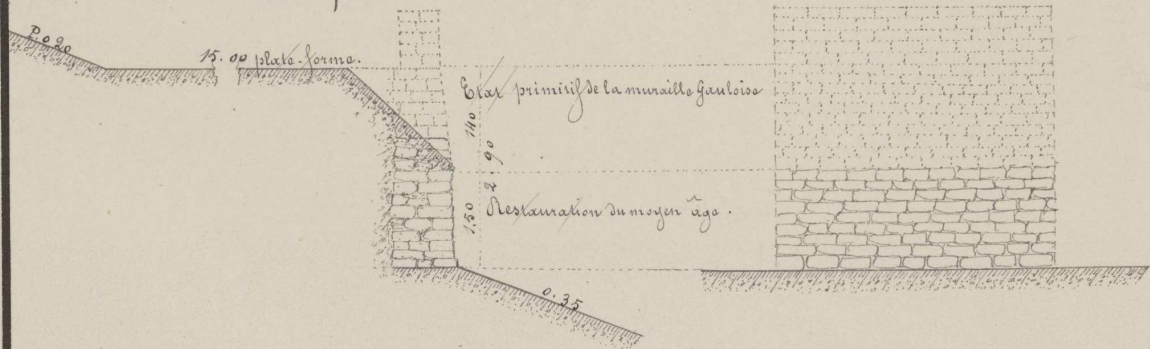 P. 0 20
15.00 plate-forme.
Etat primitif de la muraille Gauloise
140
2.90
1.50
Restauration du moyen âge.
0.35